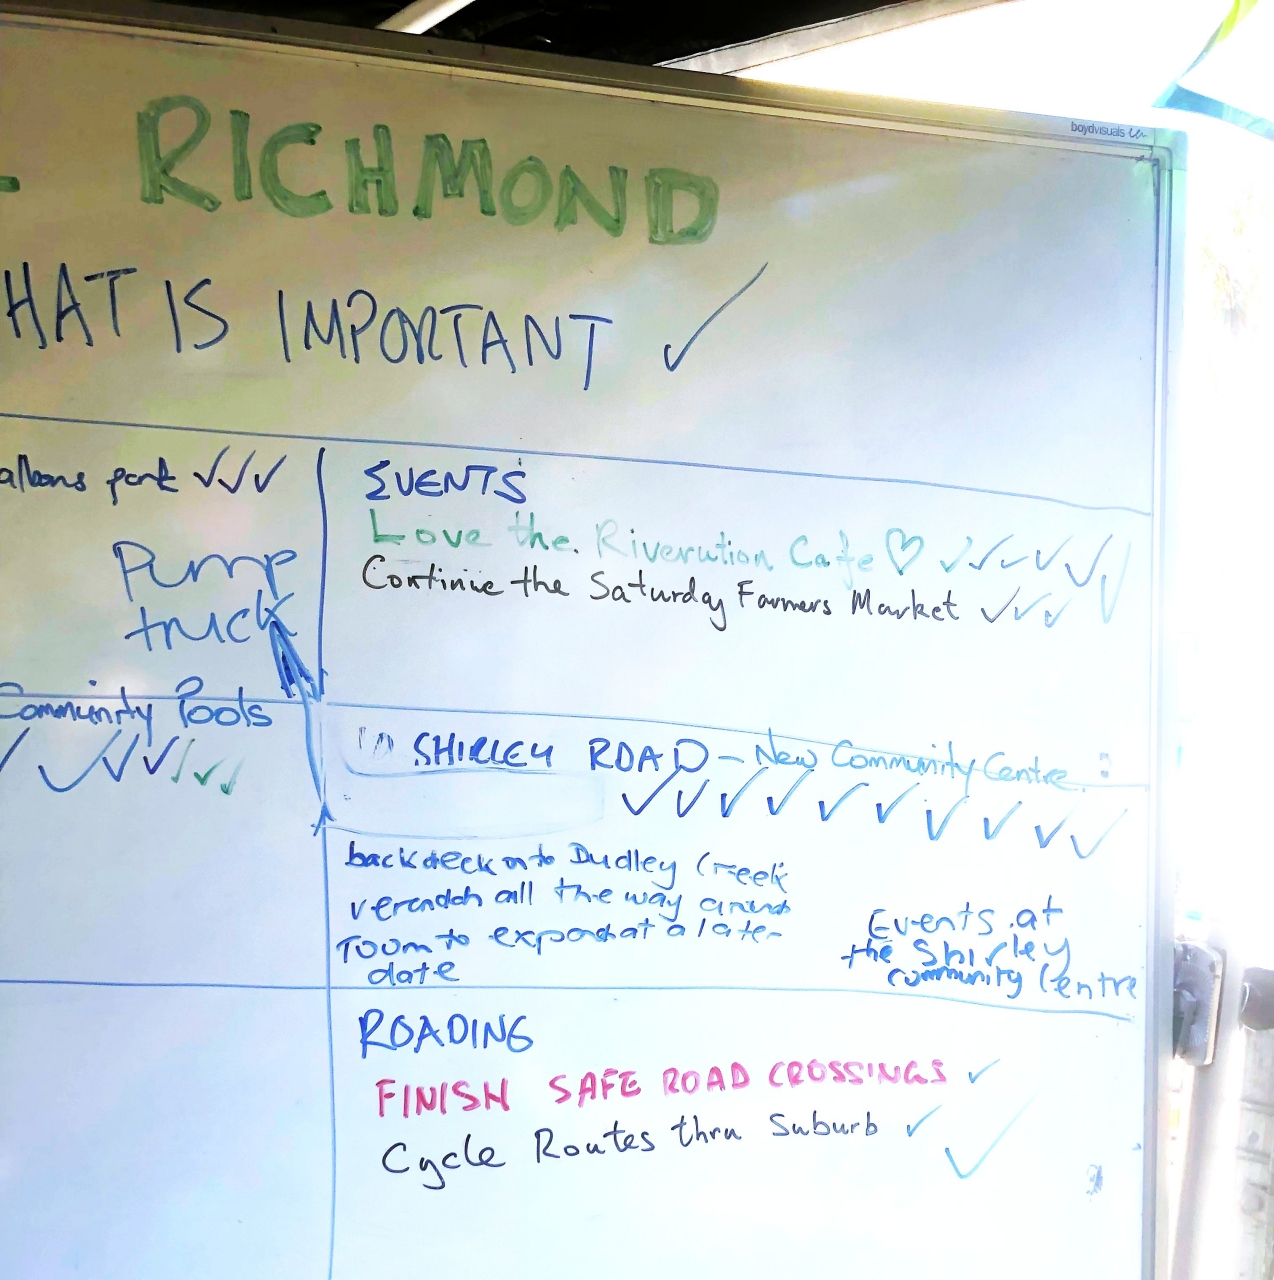 RICHMOND
boydvisuals
HAT IS IMPORTANT ✓
park ✓✓✓
Pump
truck
Community Pools
✓ ✓✓✓✓✓✓
EVENTS
Love the Riverution Cafe ♡ ✓✓✓✓✓✓
Continue the Saturday Farmers Market ✓✓✓
SHIRLEY ROAD - New Community Centre
✓✓✓✓✓✓✓✓✓✓
back deck onto Dudley Creek
verandah all the way around
room to expand at a later
date
Events at
the Shirley
community Centre
ROADING
FINISH SAFE ROAD CROSSINGS ✓
Cycle Routes thru Suburb ✓ ✓